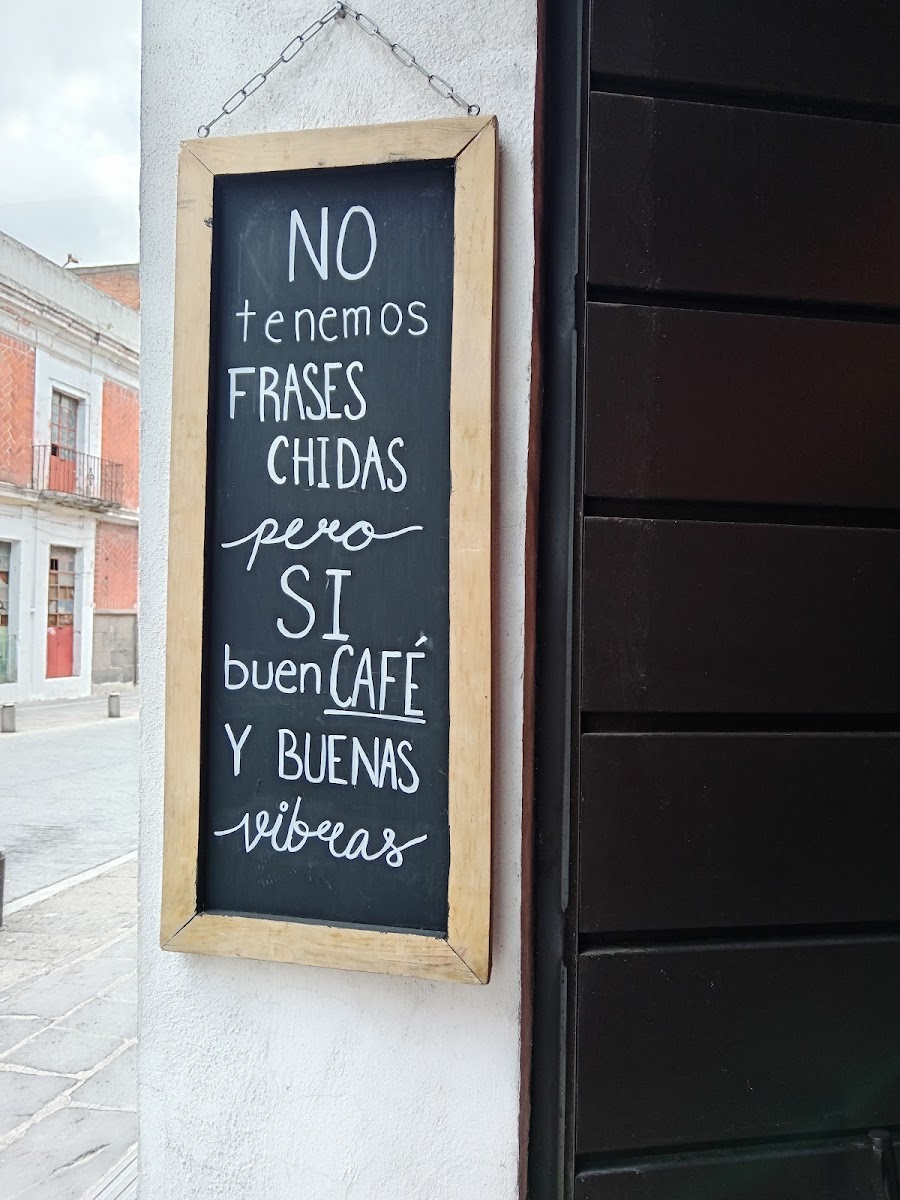 NO
tenemos
FRASES
CHIDAS
pero
SI
buen CAFÉ
Y BUENAS
vibras